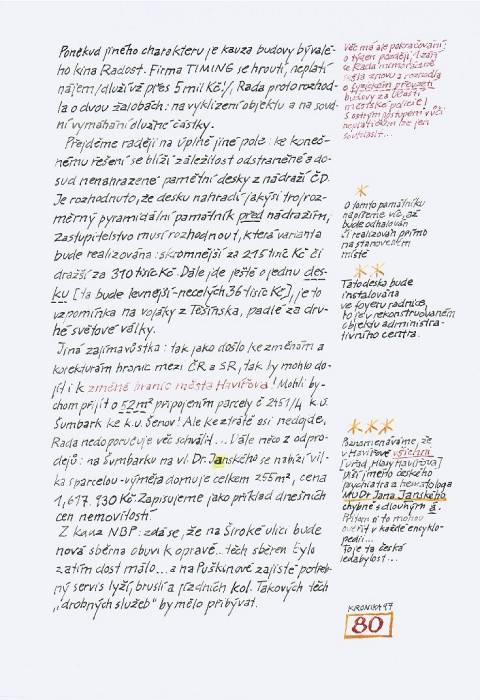 Poněkud jiného charakteru je kauza budovy bývalé-
ho kina Radost. Firma TIMING se hroutí, neplatí
nájem /dluží už přes 5 mil Kč!/, Rada proto rozhod-
la o dvou žalobách: na vyklizení objektu a na soud-
ní vymáhání dlužné částky.
Přejděme raději na úplně jiné pole: ke koneč-
nému řešení se blíží záležitost odstraněné a do-
sud nenahrazené pamětní desky z nádraží ČD.
Je rozhodnuto, že desku nahradí jakýsi trojroz-
měrný pyramidální památník před nádražím,
Zastupitelstvo musí rozhodnout, která varianta
bude realizována: skromnější za 215 tisíc Kč či
dražší za 310 tisíc Kč. Dále jde ještě o jednu des-
ku [ta bude levnější - necelých 36 tisíc Kč], je to
vzpomínka na vojáky z Těšínska, padlé za dru-
hé světové války.
Jiná zajímavůstka: tak jako došlo ke změnám a
korekturám hranic mezi ČR a SR, tak by mohlo do-
jít i k změně hranic města Havířova! Mohli by-
chom přijít o 52 m² připojením parcely č 2451/4 k.ú.
Šumbark ke k.ú. Šenov! Ale ke ztrátě asi nedojde,
Rada nedoporučuje věc schválit... Dále něco z odpro-
dejů: na Šumbarku na ul. Dr. Janského se nabízí vil-
ka s parcelou - výměra domu je celkem 255 m², cena
1,617.930 Kč. Zapisujeme jako příklad dnešních
cen nemovitostí.
Z kauz NBP: zdá se, že na Široké ulici bude
nová sběrna obuvi k opravě... těch sběren bylo
zatím dost málo... a na Puškinově zajistě potřeb-
ný servis lyží, bruslí a jízdních kol. Takových těch
„drobných služeb" by mělo přibývat.
Věc má ale pokračování:
o týden později, 1. září
se Rada mimořádně
sešla znovu a rozhodla
o fyzickém převzetí
budovy za účasti
městské policie!
S ostrým postupem vůči
neplatičům lze jen
souhlasit...
*
O tomto památníku
napíšeme víc, až
bude odhalován
či realizován přímo
na stanoveném
místě
**
Tato deska bude
instalována
ve foyeru radnice,
to je v rekonstruovaném
objektu administra-
tivního centra.
***
Poznamenáváme, že
v Havířově všichni
[úřad, Hlasy Havířova]
píší jméno českého
psychiatra a hematologa
MUDr Jana Janského
chybně s dlouhým á.
Přitom si to mohou
ověřit v každé encyklo-
pedii...
To je ta česká
ledabylost...
KRONIKA 97
80